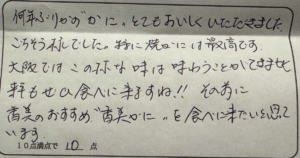 何年ぶりかの"かに"。とてもおいしくいただきました。
ごちそうさまでした。特に焼がには最高です。
大阪ではこの様な味は味わうことができません
来年もぜひ食べに来ますね!! その前に
香美のおすすめ"香美がに"を食べに来たいと思って
います。
10点満点で 10 点